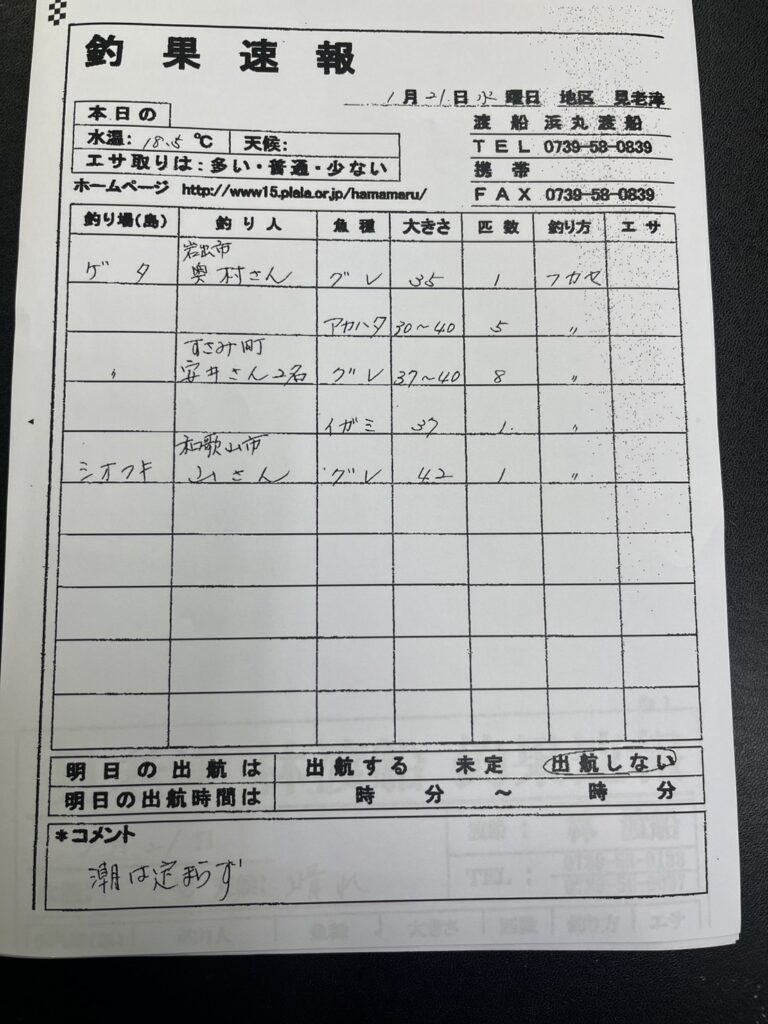 釣果速報
1月21日水曜日 地区 見老津
本日の
水温: 18.5℃ 天候:
エサ取りは:多い・普通・少ない
渡船 浜丸渡船
TEL 0739-58-0839
携帯
FAX 0739-58-0839
ホームページ http://www15.plala.or.jp/hamamaru/
釣り場(島) 釣り人 魚種 大きさ 匹数 釣り方 エサ
岩出市
ゲタ 奥村さん グレ 35 1 フカセ
アカハタ 30~40 5 〃
すさみ町
〃 安井さん2名 グレ 37~40 8 〃
イガミ 37 1 〃
和歌山市
シオフキ 山さん グレ 42 1 〃
明日の出航は 出航する 未定 出航しない
明日の出航時間は 時 分 ~ 時 分
*コメント
潮は定まらず